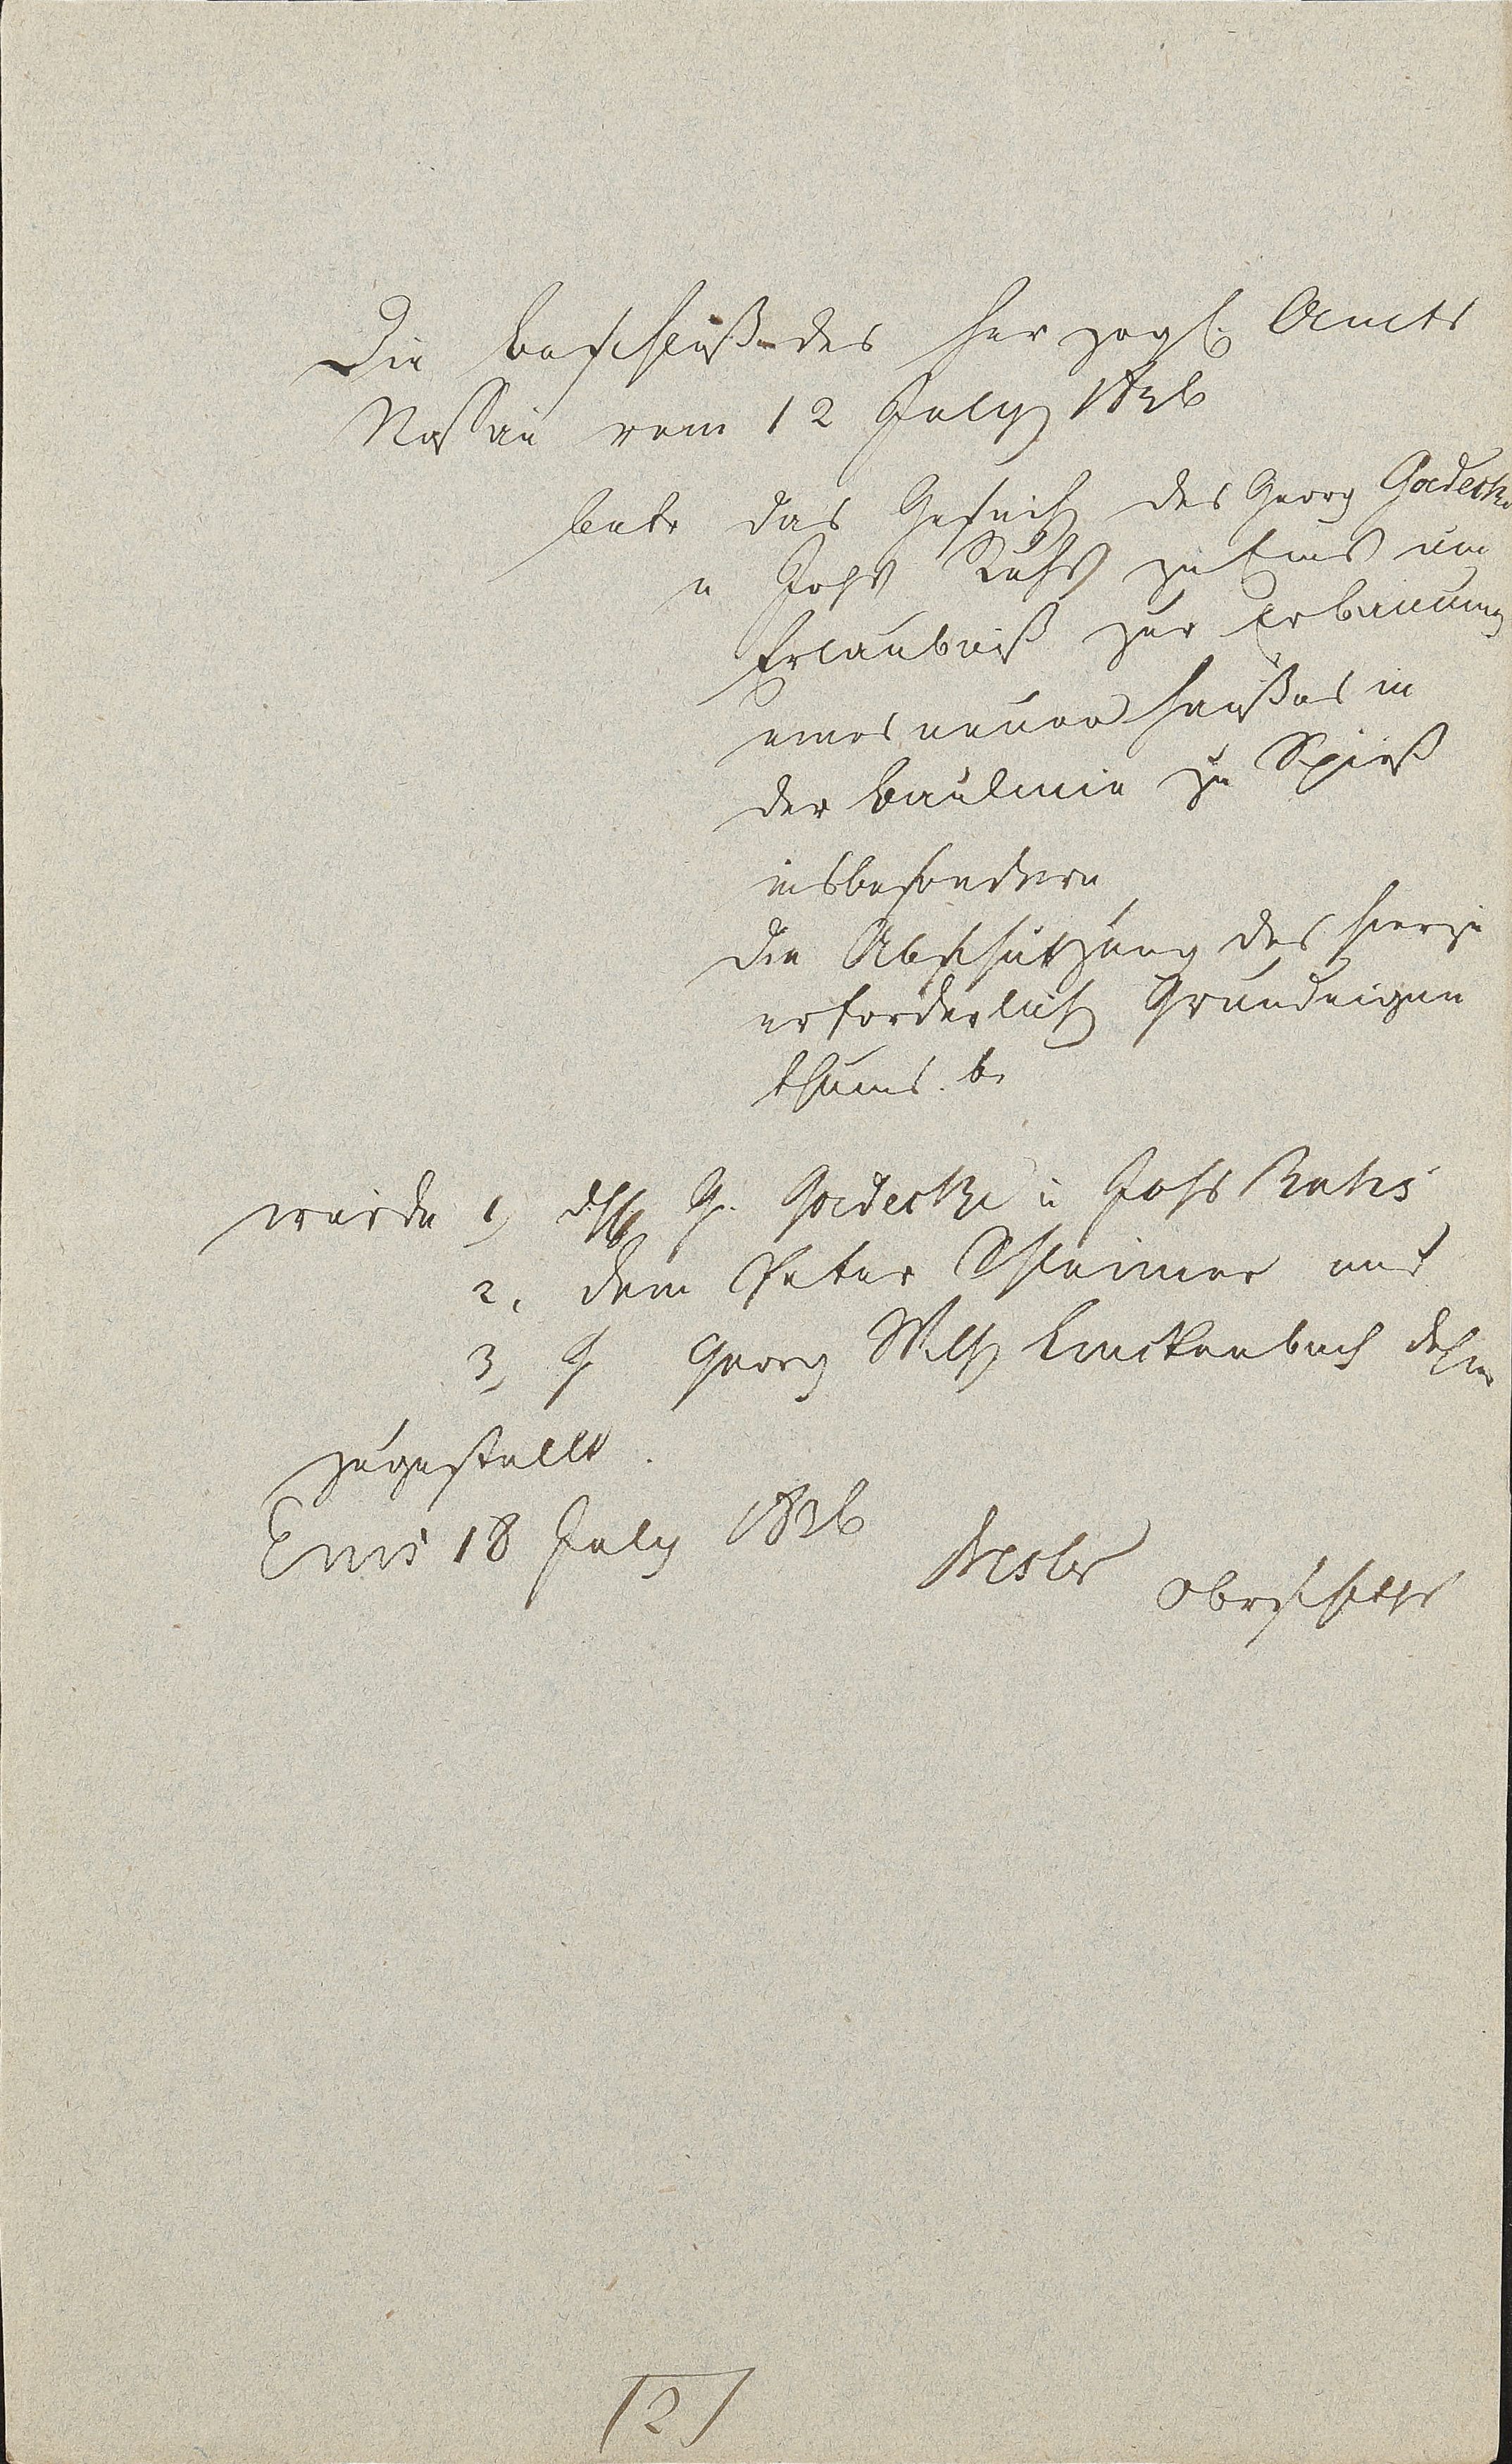 Die Beschluß des Herzogl. Amts
Nassau vom 12 July 1826
betr das Gesuch des Georg Godecke
u Johs Kuhs zu Ems um
Erlaubniß zur Erbauung
eines neuen Haußes in
der Baulinie zu Spieß
insbesondere
die Abschätzung des hierzu
erforderlich Grundeigen
thums. b.
wurde 1) G. Godecke u Johs
2. dem Peter Schleimer und
3, Georg Wilh Linckenbach
zugestellt.
Ems 18 July 1826 Obrschlths
(2)